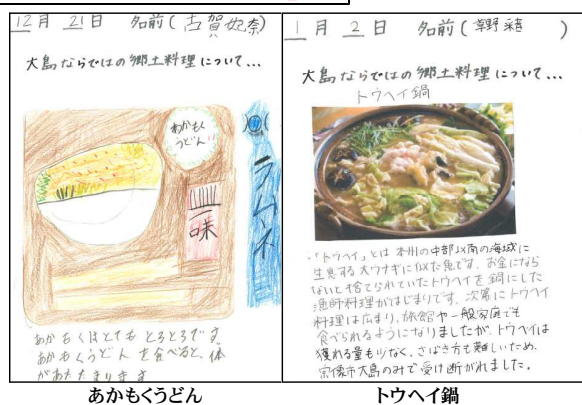 12月 21日 名前(古賀妃奈)
大島ならではの郷土料理について...
わかもく
うどん
ラムネ
一味
あかもくはとてもとろとろです。
あかもくうどんを食べると、体
があたたまります
あかもくうどん
1月 2日 名前(草野 )
大島ならではの郷土料理について...
トウヘイ鍋
・「トウヘイ」とは本州の中部以南の海域に
生息する大ウナギに似た魚です。お金になら
ないと捨てられていたトウヘイを鍋にした
漁師料理がはじまりです。次第にトウヘイ
料理は広まり、旅館や一般家庭でも
食べられるようになりましたが、トウヘイは
獲れる量も少なく、さばき方も難しいため、
宗像市大島のみで受け断がれました。
トウヘイ鍋